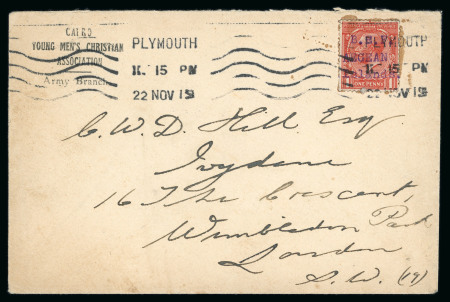 CAIRO
YOUNG MEN'S CHRISTIAN
ASSOCIATION
Army Branch
PLYMOUTH
15 PM
22 NOV 19
PLYMOUTH
15 PM
NOV 19
ONE PENNY
C. W. D. Hill Esq
Ivydene
16 The Crescent,
Wimbledon Park
London
S.W. (19)